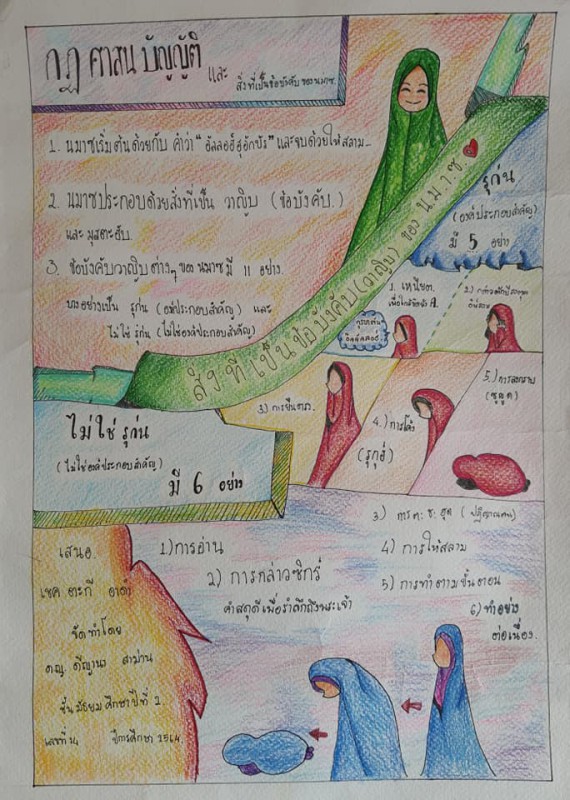 กฎ ศาสน บัญญัติ
และ สิ่งที่เป็นข้อบังคับ ของ นมาซ.
1. นมาซเริ่มต้นด้วยกับ คำว่า "อัลลอฮ์ฮุอักบัร" และจบด้วยให้สลาม
2. นมาซประกอบด้วยสิ่งที่เป็น วาญิบ (ข้อบังคับ.)
และ มุสตะฮับ.
3. ข้อบังคับวาญิบต่างๆ ของ นมาซ มี 11 อย่าง.
บางอย่างเป็น รุก่น (องค์ประกอบสำคัญ) และ
ไม่ใช่ รุก่น (ไม่ใช่องค์ประกอบสำคัญ)
สิ่งที่เป็นข้อบังคับ (วาญิบ) ของ นมาซ
รุก่น.
(องค์ประกอบสำคัญ)
มี 5 อย่าง
1. เหนียต.
2.)
3.) การยืนตรง.
4.) การโค้ง
(รุกูอ์)
5.) การลงกราบ
(ซุญูด)
ไม่ใช่ รุก่น
(ไม่ใช่องค์ประกอบสำคัญ)
มี 6 อย่าง
1) การอ่าน
2) การกล่าวซิกร์
คำสดุดีเพื่อรำลึกถึงพระเจ้า
3) การ ต. ชะ. ฮุด (ปฏิญาณตน)
4) การให้สลาม
5) การทำตามขั้นตอน
6) ทำอย่าง
ต่อเนื่อง.
เสนอ
เชค ตะกี อาดำ
จัดทำโดย
ดญ. ดีญานา สาม่าน
ชั้นมัธยมศึกษาปีที่ 2
เลขที่ ปีการศึกษา 2564